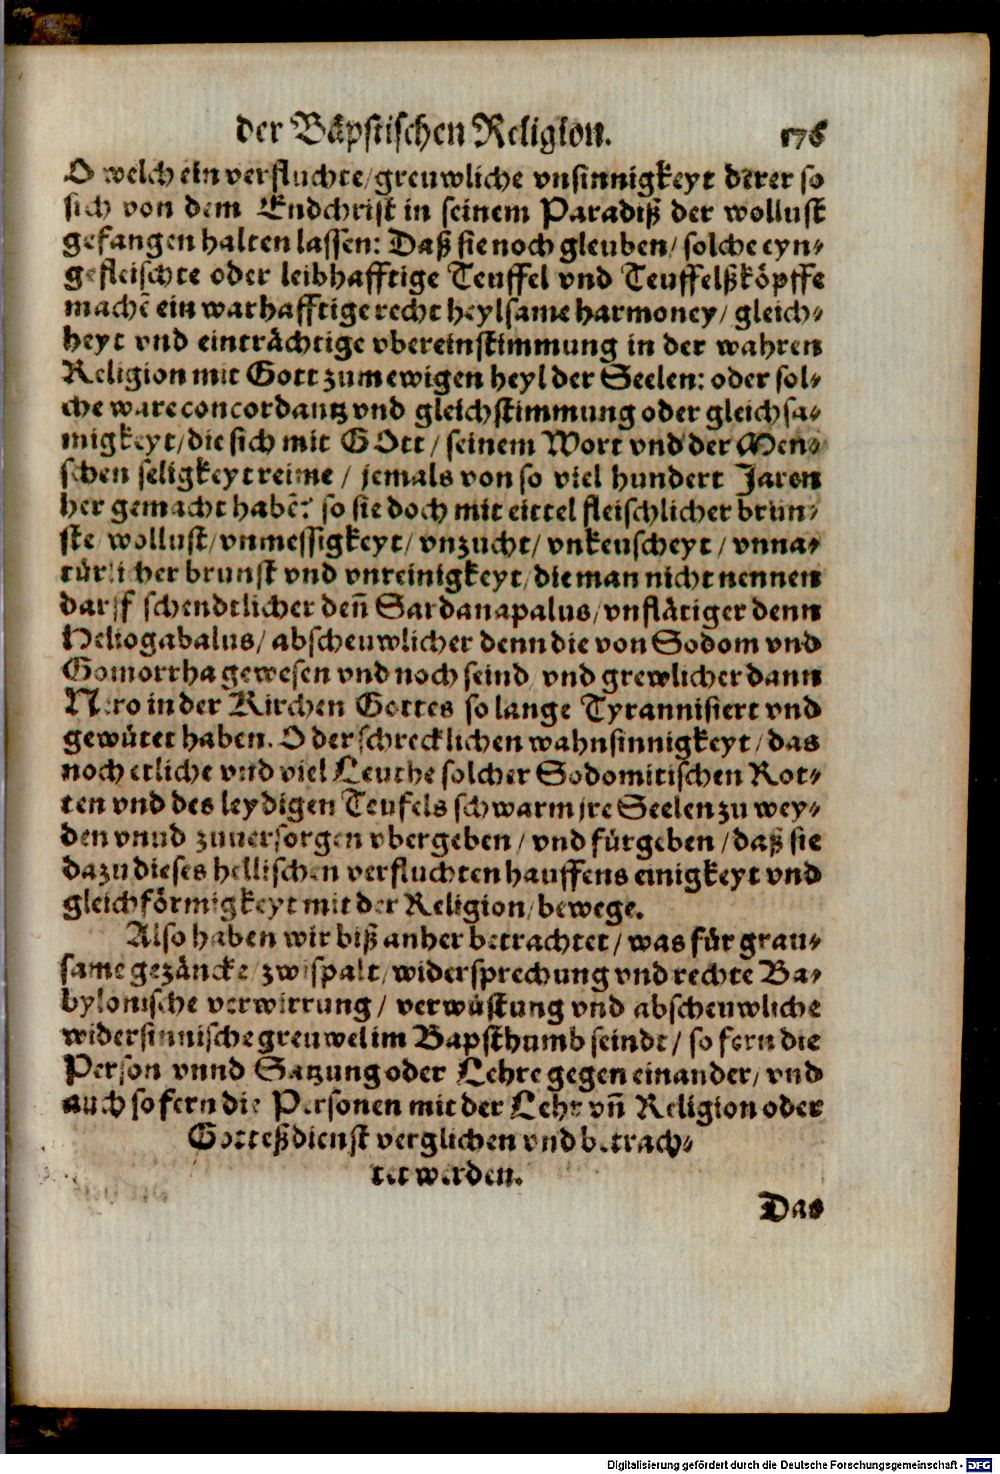 der Bäpstischen Religion. 176
O welch ein verfluchte/ greuwliche vnsinnigkeyt derer so
sich von dem Endchrist in seinem Paradiß der wollust
gefangen halten lassen: Daß sie noch gleuben/ solche eyn-
gefleischte oder leibhafftige Teuffel vnd Teuffelßköpffe
machẽ ein warhafftige recht heylsame harmoney/ gleich-
heyt vnd einträchtige vbereinstimmung in der wahren
Religion mit Gott zum ewigen heyl der Seelen: oder sol-
che ware concordantz vnd gleichstimmung oder gleichsa-
migkeyt/ die sich mit GOtt/ seinem Wort vnd der Men-
schen seligkeyt reime / jemals von so viel hundert Jaren
her gemacht habẽ? so sie doch mit eittel fleischlicher brun-
ste/ wollust/ vnmessigkeyt/ vnzucht/ vnkeuscheyt / vnna-
türlicher brunst vnd vnreinigkeyt/ die man nicht nennen
darff schendtlicher deñ Sardanapalus/ vnflätiger denn
Heliogabalus/ abscheuwlicher denn die von Sodom vnd
Gomorrha gewesen vnd noch seind/ vnd grewlicher dann
Nero in der Kirchen Gottes so lange Tyrannisiert vnd
gewütet haben. O der schrecklichen wahnsinnigkeyt / das
noch etliche vnd viel Leuthe solcher Sodomitischen Rot-
ten vnd des leydigen Teufels schwarm jre Seelen zu wey-
den vnnd zuuersorgen vbergeben / vnd fürgeben / daß sie
dazu dieses hellischen verfluchten hauffens einigkeyt vnd
gleichförmigkeyt mit der Religion/ bewege.
Also haben wir biß anher betrachtet / was für grau-
same gezäncke/ zwispalt/ widersprechung vnd rechte Ba-
bylonische verwirrung / verwüstung vnd abscheuwliche
widersinnische greuwel im Bapsthumb seindt / so fern die
Person vnnd Satzung oder Lehre gegen einander/ vnd
auch so fern die Personen mit der Lehr vñ Religion oder
Gotteßdienst verglichen vnd betrach-
tet werden.
Das
Digitalisierung gefördert durch die Deutsche Forschungsgemeinschaft - DFG